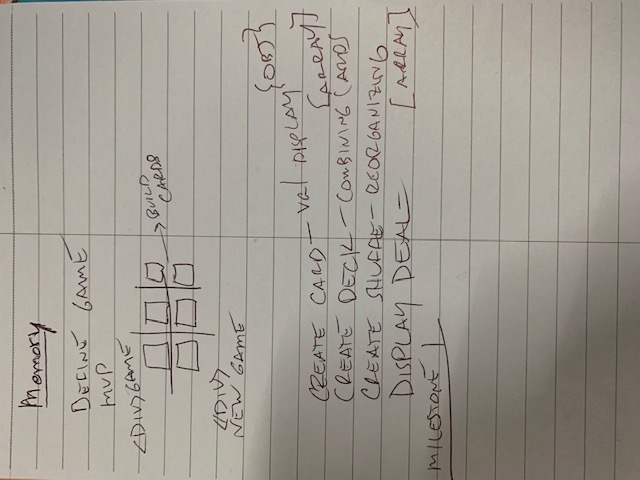 Memory
DEFINE GAME
MVP
<DIV> GAME
→ BUILD
CARDS
<DIV>
NEW GAME
{OBJ}
CREATE CARD — val DISPLAY
[ARRAY]
CREATE DECK — COMBINING CARDS
CREATE SHUFFLE — REORGANIZING
DISPLAY DEAL — [ARRAY]
MILESTONE 1